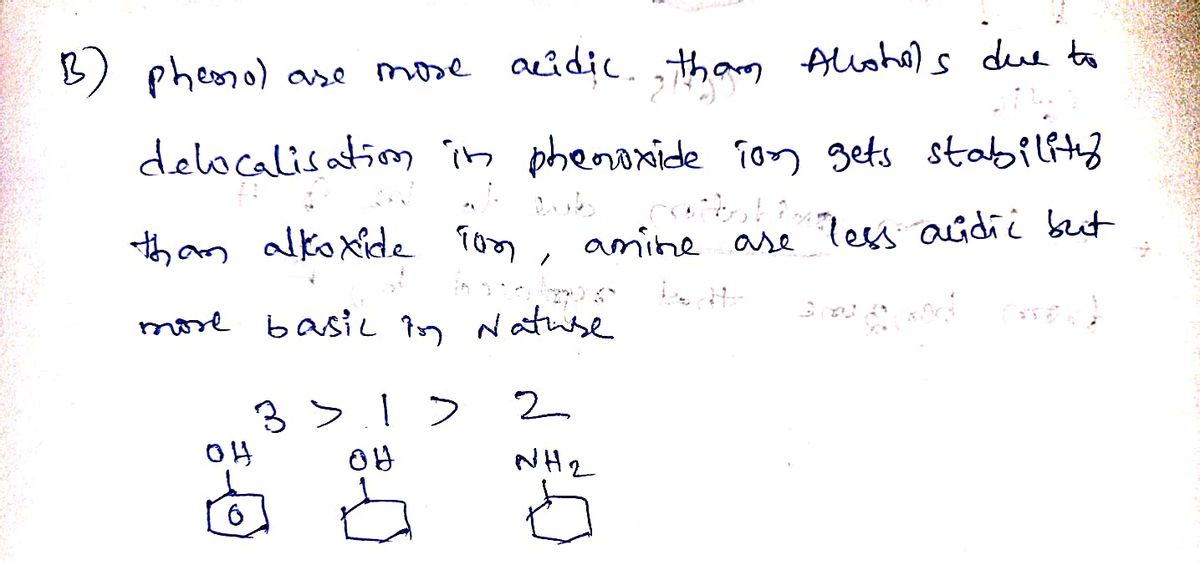 B) phenol are more acidic than Alcohols due to
delocalisation in phenoxide ion gets stability
than alkoxide ion, amine are less acidic but
more basic in Nature
3 > 1 > 2
OH OH NH2